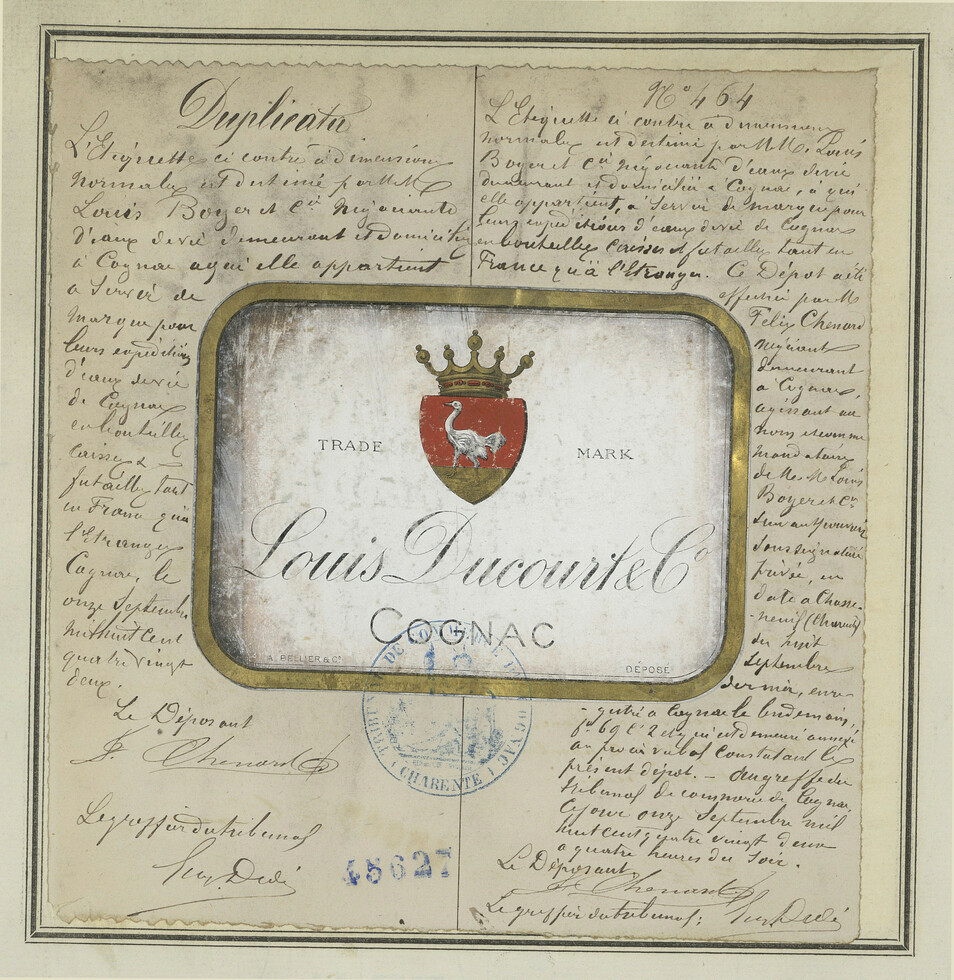 Duplicata
L'Etiquette ci contre à dimensions
normales est destiné par MM
Louis Boyer et Cie Négociants
d'eaux de vie demeurant et domiciliés
à Cognac a qui elle appartient
a Servir de
marque pour
leurs expéditions
d'eaux de vie
de Cognac
en bouteilles
Caisses &
futailles tant
en France qu'à
l'Etranger
Cognac, le
onze Septembre
mil huit cent
quatre vingt
deux.
Le Déposant
F. Chenard
Le greffier du tribunal
N° 464
L'Etiquette ci contre à dimensions
normales est destiné par MM. Louis
Boyer et Cie Négociants d'eaux de vie
demeurant et domiciliés à Cognac, à qui
elle appartient, à Servir de marque pour
leurs expéditions d'eaux de vie de Cognac
en bouteilles caisses et futailles tant en
France qu'à l'Etranger. Ce Dépot a été
effectué par M
Felix Chenard
négociant
demeurant
a Cognac,
agissant au
nom et comme
mandataire
de MM. Louis
Boyer et Cie
Suivant pouvoirs
Sous Signature
privée, en
date à Chasse-
neuil (Charente)
du huit
Septembre
dernier, enre-
-gistré a Cognac le lendemain,
f° 69 et demeuré annexé
au procès verbal Constatant le
présent dépot. — Au greffe du
tribunal de commerce de Cognac,
Ce jour onze Septembre mil
huit cent quatre vingt deux
a quatre heures du Soir.
Le Déposant,
F. Chenard
Le greffier du tribunal:
TRADE MARK
Louis Ducourt & Co
COGNAC
A. BELLIER & Co
DÉPOSÉ
TRIBUNAL DE COMMERCE DE COGNAC
(CHARENTE)
45627